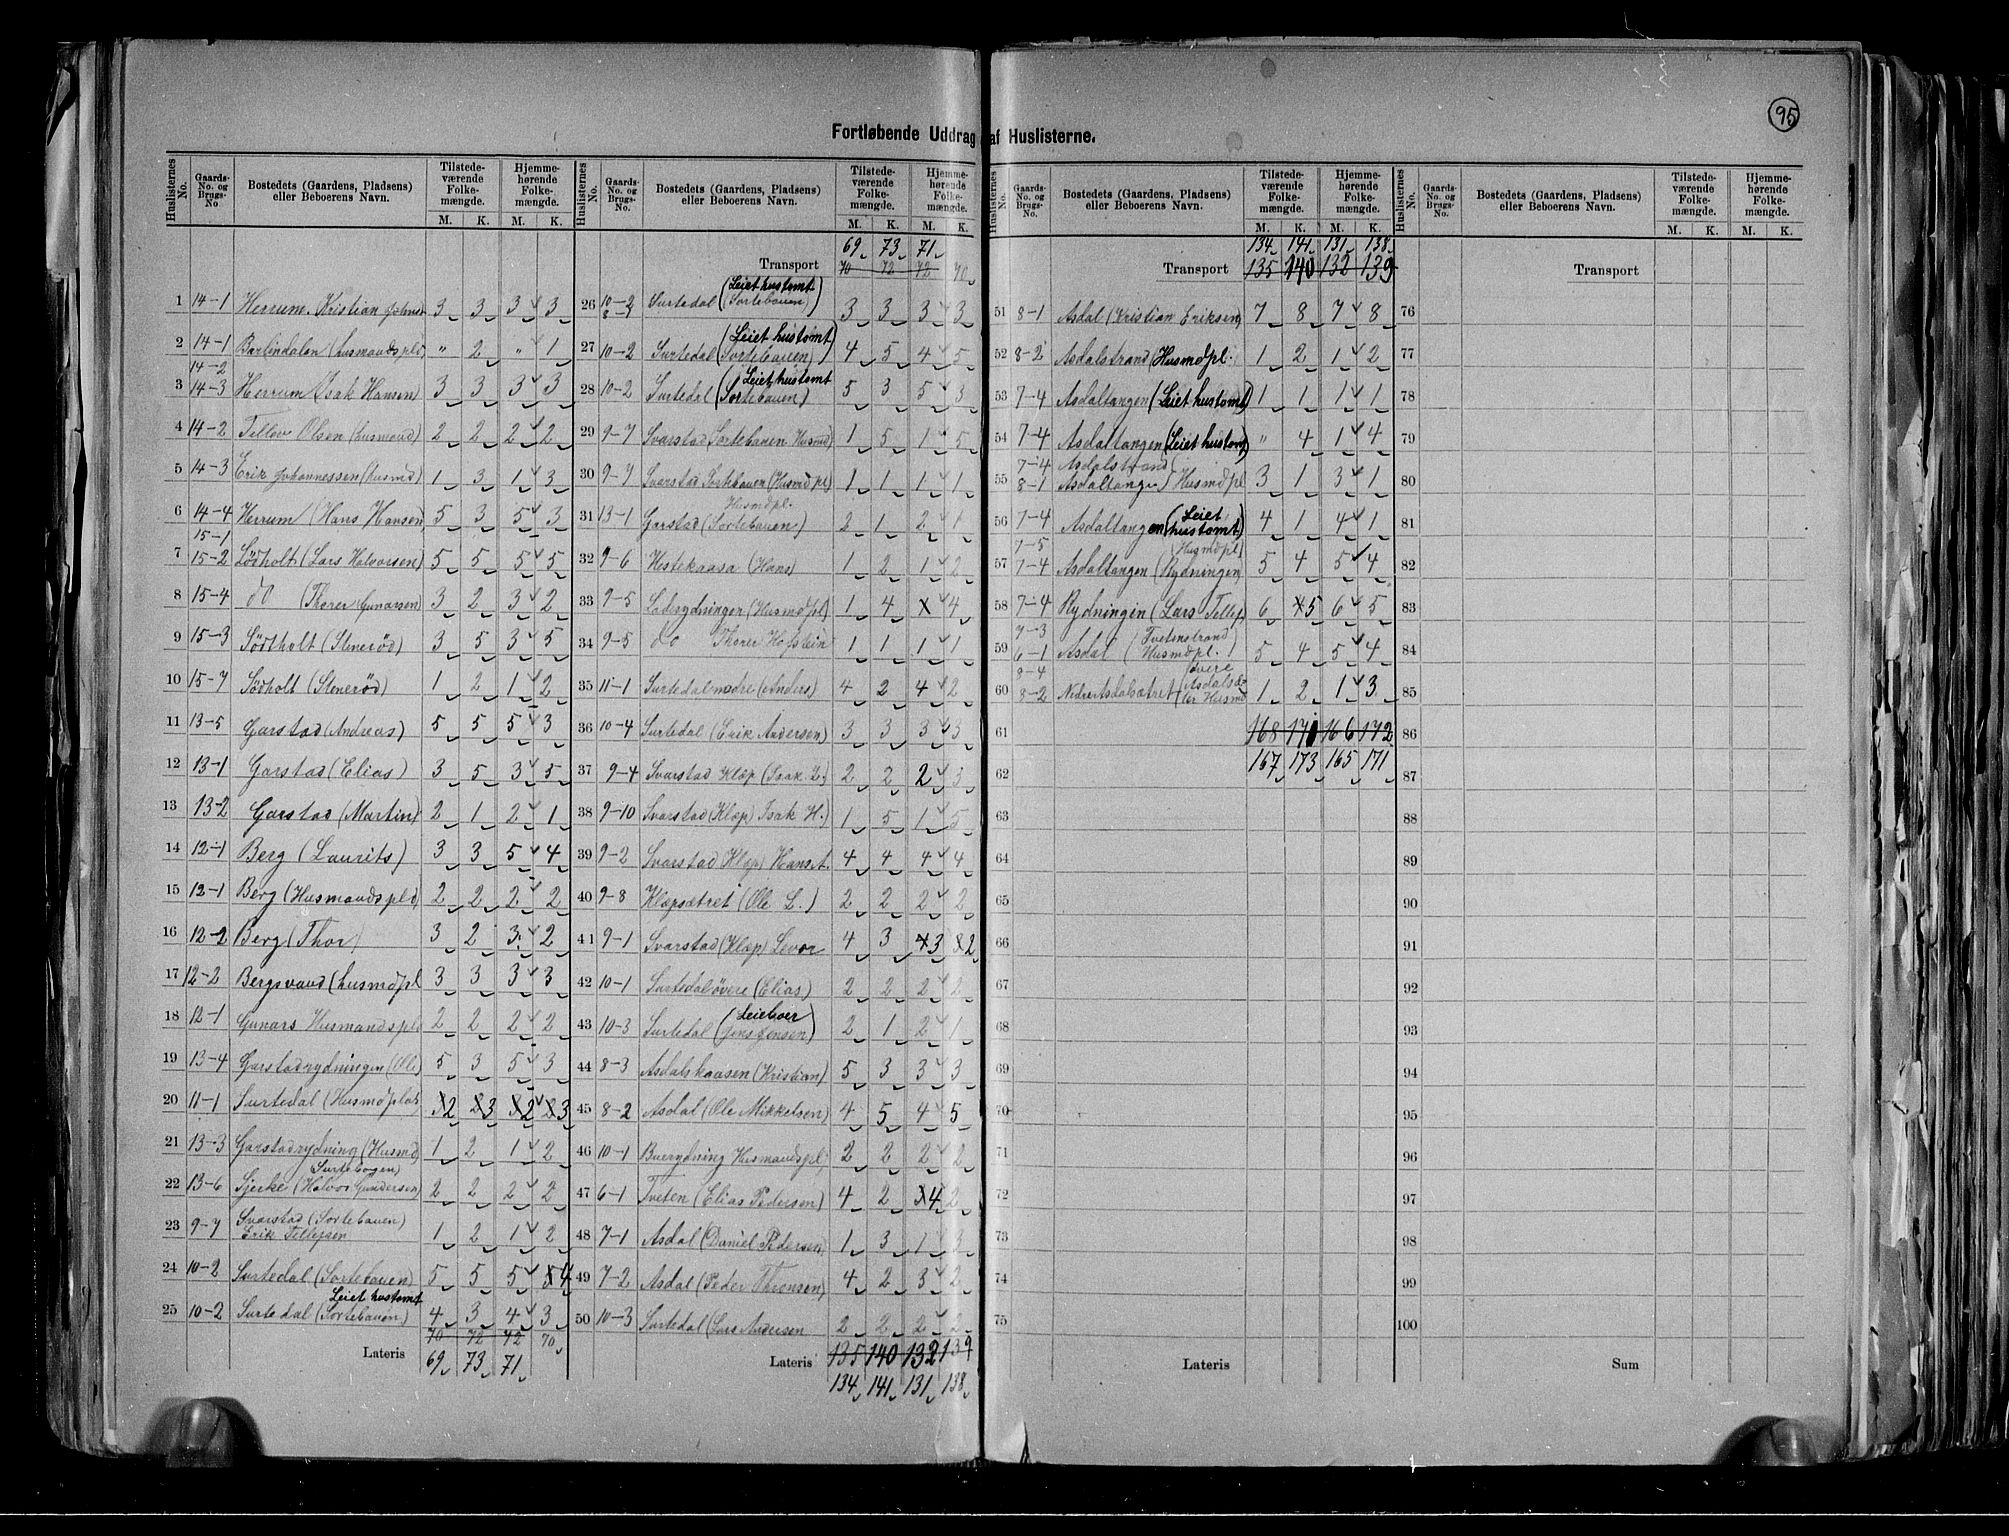 95
Fortløbende Uddrag af Huslisterne.
Huslisternes No. Gaards-No. og Brugs-No. Bostedets (Gaardens, Pladsens) eller Beboerens Navn. Tilstedeværende Folkemængde. Hjemmehørende Folkemængde.
M. K. M. K.
1 14-1 Herrum. Kristian 3 3 3 3
2 14-1 Barlindalen (husmandspld) " 2 " 1
3 14-2 14-3 Herrum (Isak Hansen) 3 3 3 3
4 14-2 Tellev Olsen (husmand) 2 2 2 2
5 14-3 Erik Johannessen (Husmd) 1 3 1 3
6 14-4 Herrum (Hans Hansen 5 3 5 3
7 15-1 15-2 Lødholt (Lars Halvorsen) 5 5 5 5
8 15-4 do (Thorer Gunarsen) 3 2 3 2
9 15-3 Sødtholt (Stenerød) 3 5 3 5
10 15-7 Sødholt (Stenerød) 1 2 1 2
11 13-5 Garstad (Andreas) 5 5 5 3
12 13-1 Garstad (Elias) 3 5 3 5
13 13-2 Garstad (Martin) 2 1 2 1
14 12-1 Berg (Laurits) 3 3 5 4
15 12-1 Berg (Husmandspld) 2 2 2 2
16 12-2 Berg (Thor 3 2 3 2
17 12-2 Bergsvand (husmdpl 3 3 3 3
18 12-1 Gunars Husmandspld 2 2 2 2
19 13-4 Garstadrydningen (Ole) 5 3 5 3
20 11-1 Surtedal (Husmdplds) 2 3 2 3
21 13-3 Garstadrydning (Husmd) 1 2 1 2
22 13-6 Sjerke (Halvor Gundersen) Surtebogen) 2 2 2 2
23 9-7 Svarstad (Sortebauen) Erik Tellefsen 1 2 1 2
24 10-2 Surtedal (Sortebauen) 5 5 5 4
25 10-2 Surtedal (Sortebauen) Leiet hustomt 4 3 4 3
70 72 72 70
Lateris 69 73 71
Huslisternes No. Gaards-No. og Brugs-No. Bostedets (Gaardens, Pladsens) eller Beboerens Navn. Tilstedeværende Folkemængde. Hjemmehørende Folkemængde.
M. K. M. K.
69 73 71
Transport 70 72 72 70
26 10-2 Surtedal (Leiet hustomt Sortebauen) 3 3 3 3
27 10-2 Surtedal (Leiet hustomt Sortebauen) 4 5 4 5
28 10-2 Surtedal (Leiet hustomt Sortebauen) 5 3 5 3
29 9-7 Svarstad Sortebauen Husmd) 1 5 1 5
30 9-7 Svarstad Sortebauen (Husmdpl) 1 1 1 1
31 13-1 Garstad (Sortebauen) Husmdpl. 2 1 2 1
32 9-6 Hestekaasa (Hans) 1 2 1 2
33 9-5 Ladrydninger (Husmdpl) 1 4 4
34 9-5 do Thorer Hofstein 1 1 1 1
35 11-1 Surtedal nedre (Anders) 4 2 4 2
36 10-4 Surtedal (Erik Andersen) 3 3 3 3
37 9-4 Svarstad Klop (Isak L.) 2 2 2 3
38 9-10 Svarstad (Klop) Isak H.) 1 5 1 5
39 9-2 Svarstad Klop) Hans A. 4 4 4 4
40 9-8 Klopsætret (Ole L.) 2 2 2 2
41 9-1 Svarstad (Klop) Levor 4 3 3 2
42 10-1 Surtedal övere (Elias) 2 2 2 2
43 10-3 Surtedal (Leieboer Jens Jensen) 2 1 2 1
44 8-3 Asdalskaasen (Kristian) 5 3 3 3
45 8-2 Asdal (Ole Mikkelsen) 4 5 4 5
46 10-1 Buerydning Husmandspl; 2 2 2 2
47 6-1 Tveten (Elias Pedersen) 4 2 4 2
48 7-1 Asdal (Daniel Pedersen) 1 3 1 3
49 7-2 Asdal (Peder Thronsen) 4 2 3 2
50 10-3 Surtedal (Lars Andersen 2 2 2 2
Lateris 135 140 132 139
134 141 131 138
Huslisternes No. Gaards-No. og Brugs-No. Bostedets (Gaardens, Pladsens) eller Beboerens Navn. Tilstedeværende Folkemængde. Hjemmehørende Folkemængde.
M. K. M. K.
134 141 131 138
Transport 135 140 132 139
51 8-1 Asdal (Kristian Eriksen) 7 8 7 8
52 8-2 Asdalstrand (Husmdpl. 1 2 1 2
53 7-4 Asdaltangen (Leiet hustomt) 1 1 1 1
54 7-4 Asdaltangen (Leiet hustomt) " 4 1 4
55 7-4 8-1 Asdalstrand Asdaltangen) Husmdpl 3 1 3 1
56 7-4 Asdaltangen (Leiet hustomt) 4 1 4 1
57 7-5 7-4 Asdaltangen (Rydningen) (Husmdpl) 5 4 5 4
58 7-4 Rydningen (Lars Tellef 6 5 6 5
59 6-1 Asdal (Tvetenstrand Husmdpl.) 5 4 5 4
60 8-4 8-2 Nedre Asdalsætret 1 2 1 3
61 168 170 166 172
62 167 173 165 171
63
64
65
66
67
68
69
70
71
72
73
74
75
Lateris
Huslisternes No. Gaards-No. og Brugs-No. Bostedets (Gaardens, Pladsens) eller Beboerens Navn. Tilstedeværende Folkemængde. Hjemmehørende Folkemængde.
M. K. M. K.
Transport
76
77
78
79
80
81
82
83
84
85
86
87
88
89
90
91
92
93
94
95
96
97
98
99
100
Sum